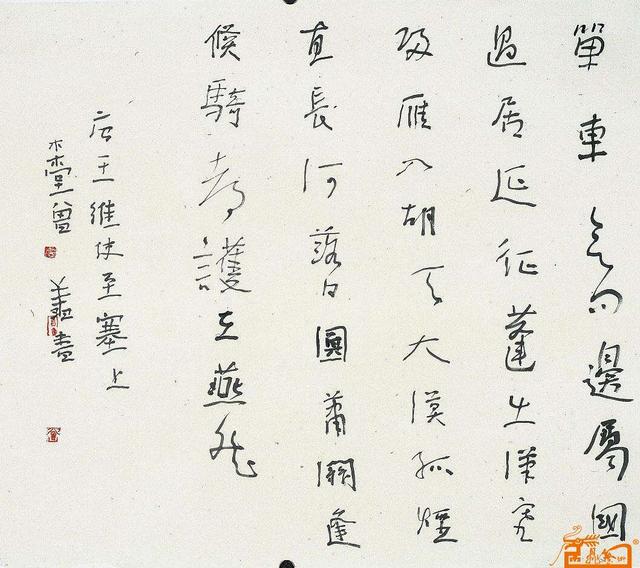 單車欲問邊屬國
過居延征蓬出漢塞
歸雁入胡天大漠孤煙
直長河落日圓蕭關逢
候騎都護在燕然
唐王維使至塞上
曾書